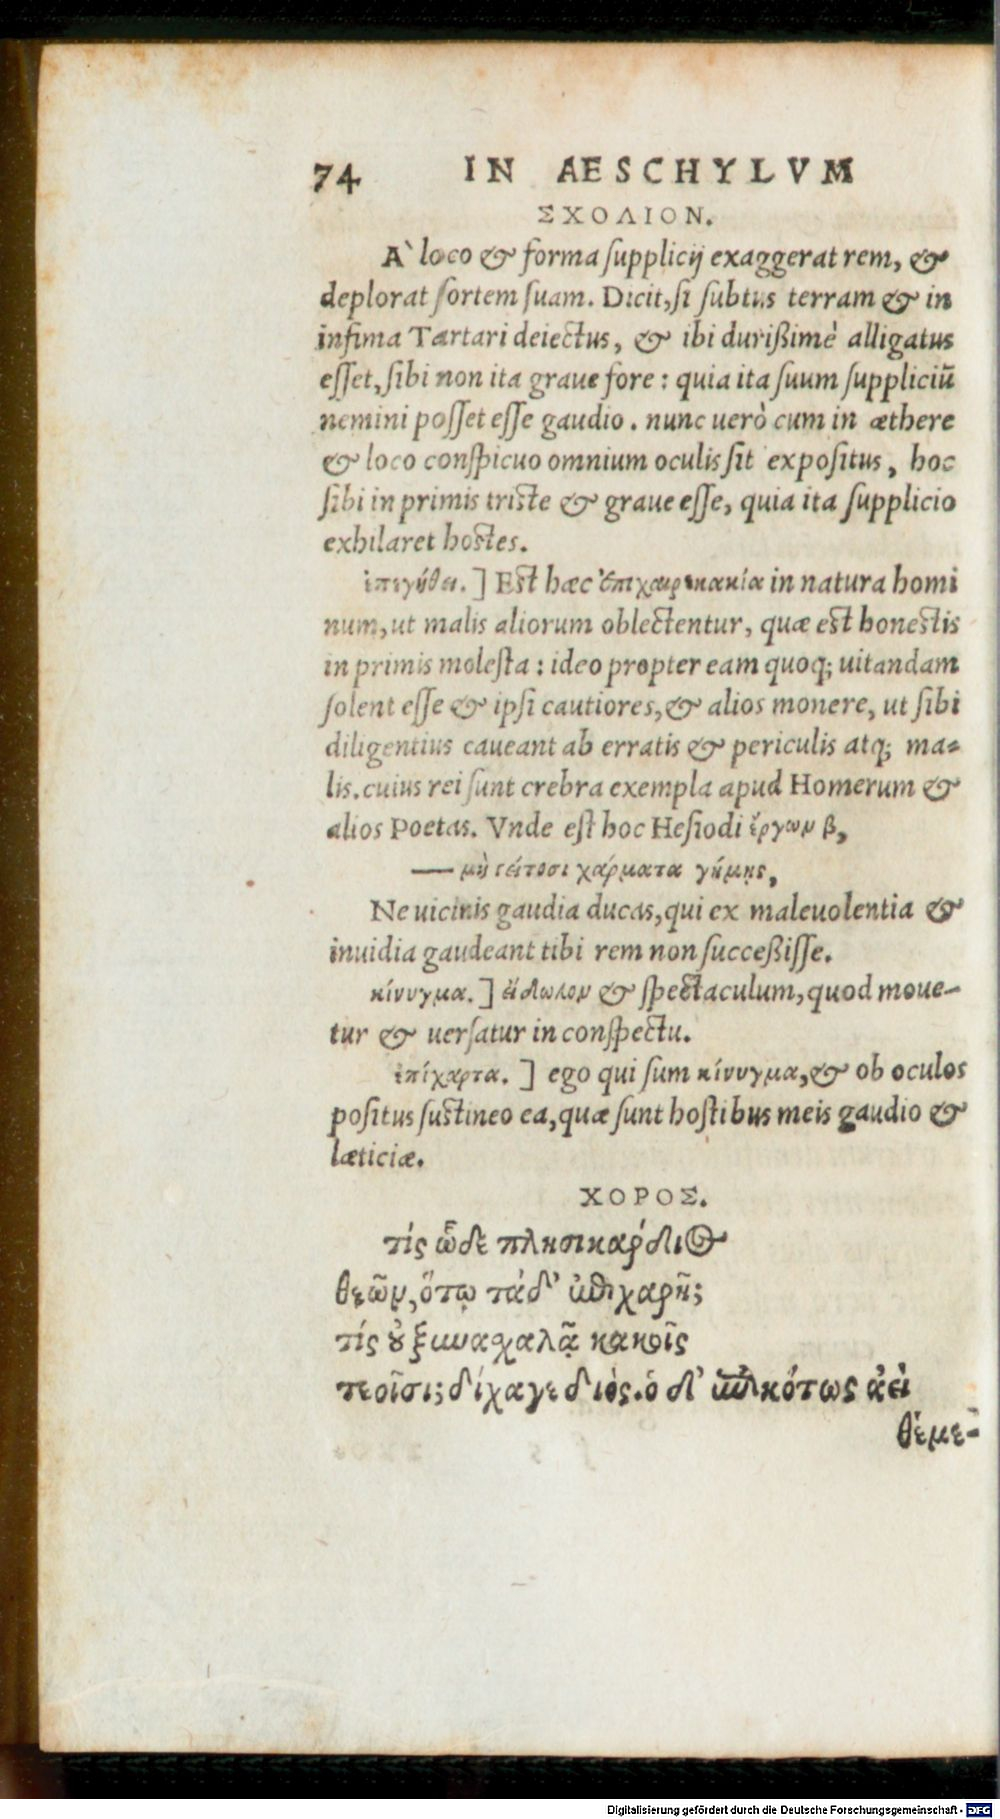 74 IN AESCHYLVM
ΣΧΟΛΙΟΝ.
A` loco & forma supplicij exaggerat rem, &
deplorat sortem suam. Dicit, si subtus terram & in
infima Tartari deiectus, & ibi durißimè alligatus
esset, sibi non ita graue fore: quia ita suum suppliciū
nemini posset esse gaudio. nunc uerò cum in æthere
& loco conspicuo omnium oculis sit expositus, hoc
sibi in primis triste & graue esse, quia ita supplicio
exhilaret hostes.
ἐπεγήθει.] Est hæc ἐπιχαιρεκακία in natura homi
num, ut malis aliorum oblectentur, quæ est honestis
in primis molesta: ideo propter eam quoq; uitandam
solent esse & ipsi cautiores, & alios monere, ut sibi
diligentius caueant ab erratis & periculis atq; ma=
lis. cuius rei sunt crebra exempla apud Homerum &
alios Poetas. Vnde est hoc Hesiodi ἔργων β,
— μὴ γείτοσι χάρματα γήμῃς,
Ne uicinis gaudia ducas, qui ex maleuolentia &
inuidia gaudeant tibi rem non succeßisse.
κίνυγμα.] εἴδωλον & spectaculum, quod moue-
tur & uersatur in conspectu.
ἐπίχαρτα.] ego qui sum κίνυγμα, & ob oculos
positus sustineo ea, quæ sunt hostibus meis gaudio &
læticiæ.
ΧΟΡΟΣ.
τίς ὧδε τλησικάρδιος
θεῶν, ὅτῳ τάδ' ἐπιχαρῆ;
τίς οὐ ξυνασχαλᾷ κακοῖς
τεοῖσι; δίχαγε διός. ὁ δ' ἐπικότως ἀεὶ
θέμε-
Digitalisierung gefördert durch die Deutsche Forschungsgemeinschaft - DFG